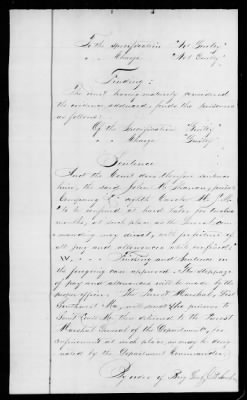 To the Specification "Not Guilty"
" " Charge "Not Guilty"
Finding:
The court having maturely considered
the evidence adduced, finds the prisoner
as follows:
Of the Specification "Guilty"
" " Charge "Guilty"
Sentence
And the Court does therefore sentence
him, the said John R. private
Company eighth Cavalry M.
"to be confined at hard labor for twelve
months, at such place as the General Com-
manding may direct, with forfeiture of
all pay and allowances while confined."
Finding and Sentence in
the foregoing case approved. The stoppage
of pay and allowances will be made by the
proper officer. The Provost Marshal, Post
will send the prisoner to
Saint Louis Mo. then delivered to the Provost
Marshal General of the Department, for
confinement at such place as may be desig-
nated by the Department Commander.
By order of Brig Genl